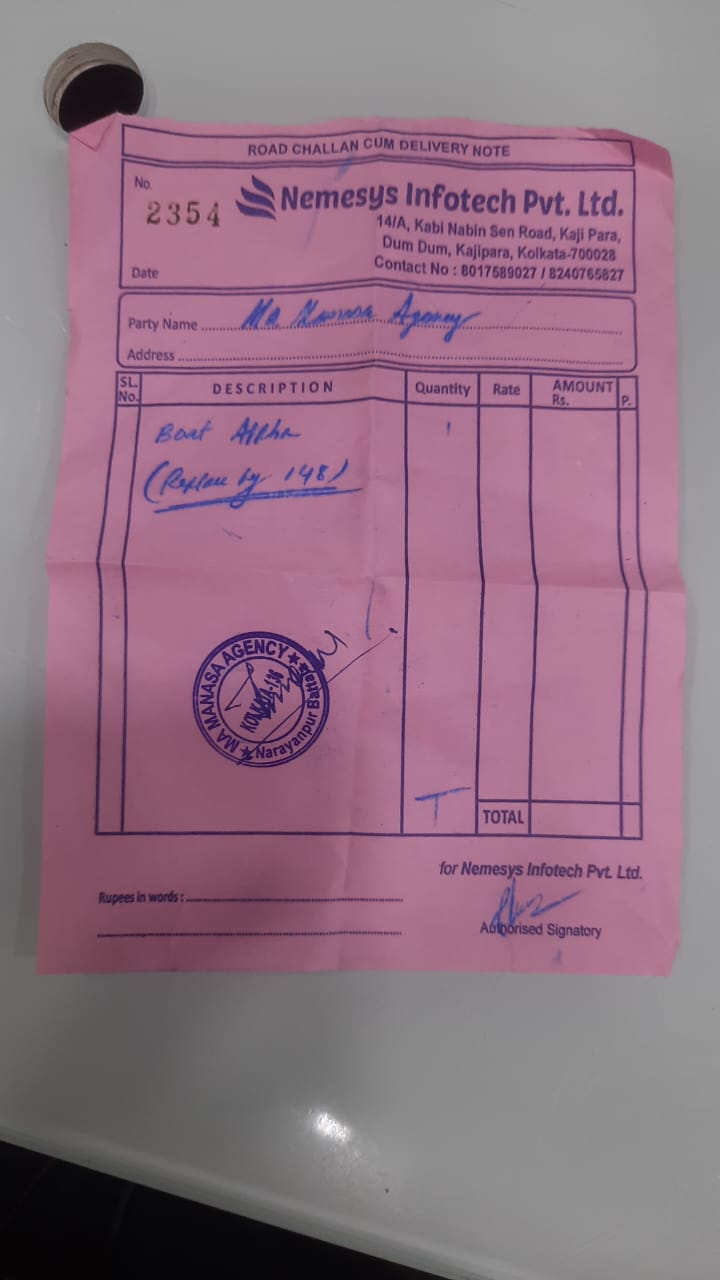 ROAD CHALLAN CUM DELIVERY NOTE
No.
2354
Nemesys Infotech Pvt. Ltd.
14/A, Kabi Nabin Sen Road, Kaji Para,
Dum Dum, Kajipara, Kolkata-700028
Contact No : 8017589027 / 8240765827
Date
Party Name Ma Manasa Agency
Address
SL. No. DESCRIPTION Quantity Rate AMOUNT Rs. P.
Boat Alpha 1
(Replace by 148)
MA MANASA AGENCY
KOLKATA-136
Narayanpur Battala
TOTAL
for Nemesys Infotech Pvt. Ltd.
Rupees in words :
Authorised Signatory